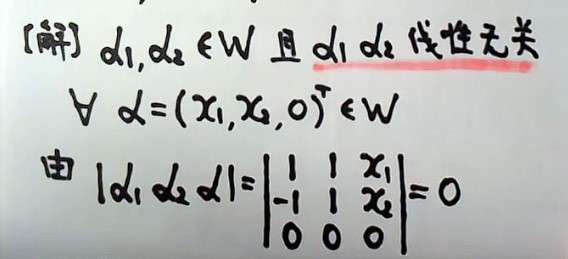 [解] α₁,α₂∈W 且 α₁ α₂ 线性无关
∀ α=(x₁,x₂,0)ᵀ∈W
由 |α₁ α₂ α|=|1 1 x₁; -1 1 x₂; 0 0 0|=0